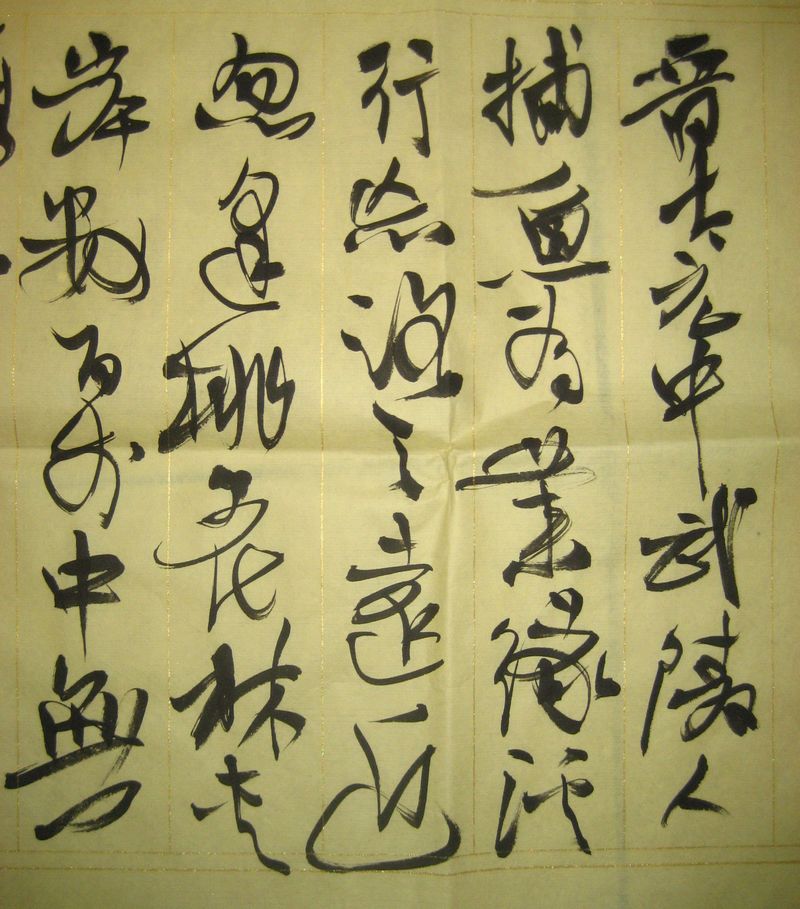 晉太元中武陵人
捕魚為業緣溪
行忘路之遠近
忽逢桃花林夾
岸數百步中無